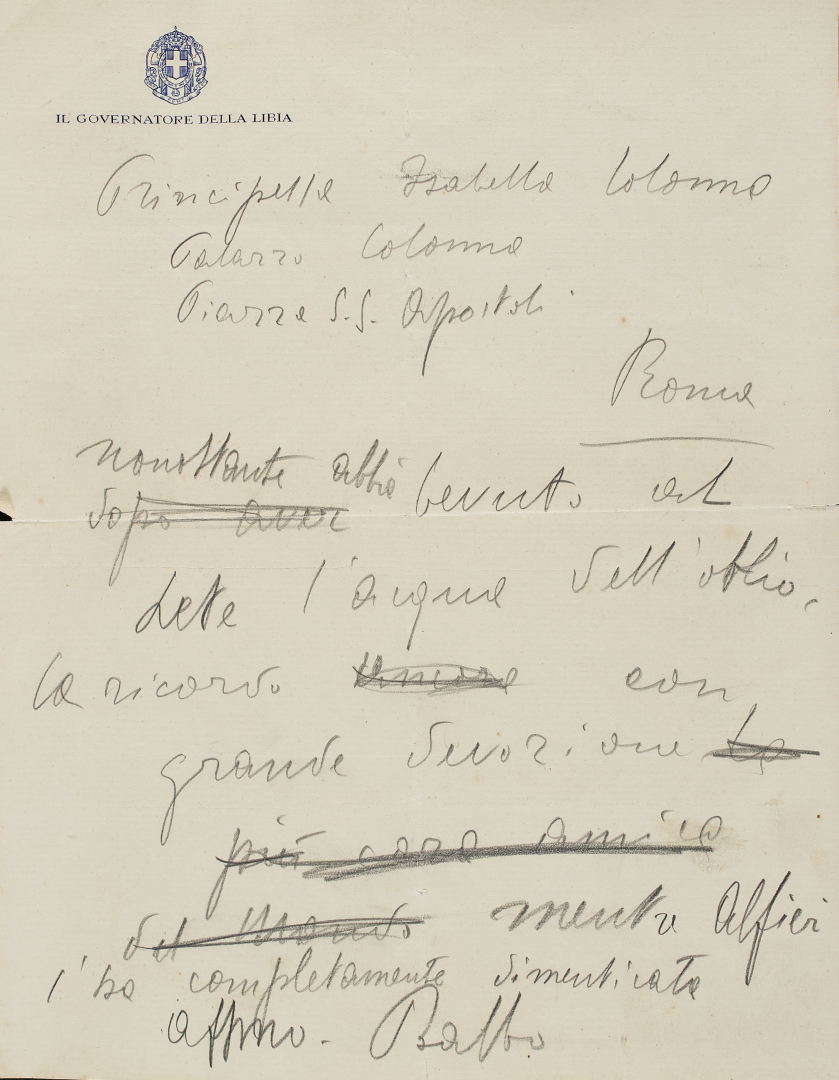 IL GOVERNATORE DELLA LIBIA
Principessa Isabella Colonna
Palazzo Colonna
Piazza S.S. Apostoli
Roma
nonostante abbia
dopo aver bevuto al
Lete l'acqua dell'oblio,
la ricordo ancora con
grande devozione la
più cara amica
del Mondo mentre Alfieri
l'ha completamente dimenticata
affmo. Balbo